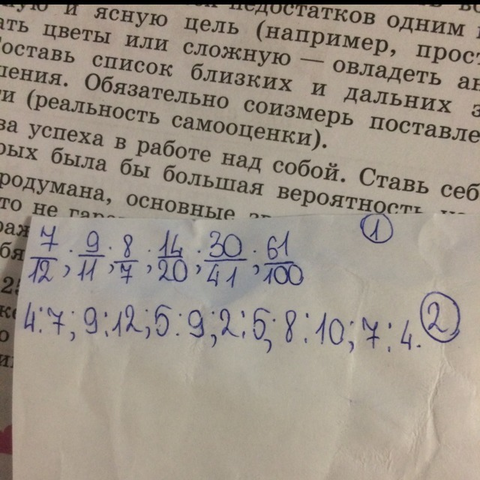 недостатков одним
и ясную цель (например, прос
ать цветы или сложную — овладеть
Составь список близких и дальних з
ления. Обязательно соизмерь поставле
ти (реальность самооценки).
ва успеха в работе над собой. Ставь себ
рых была бы большая вероятность
родумана, основные
то не
7/12; 9/11; 8/7; 14/20; 30/41; 61/100 1
4:7; 9:12; 5:9; 2:5; 8:10; 7:4. 2